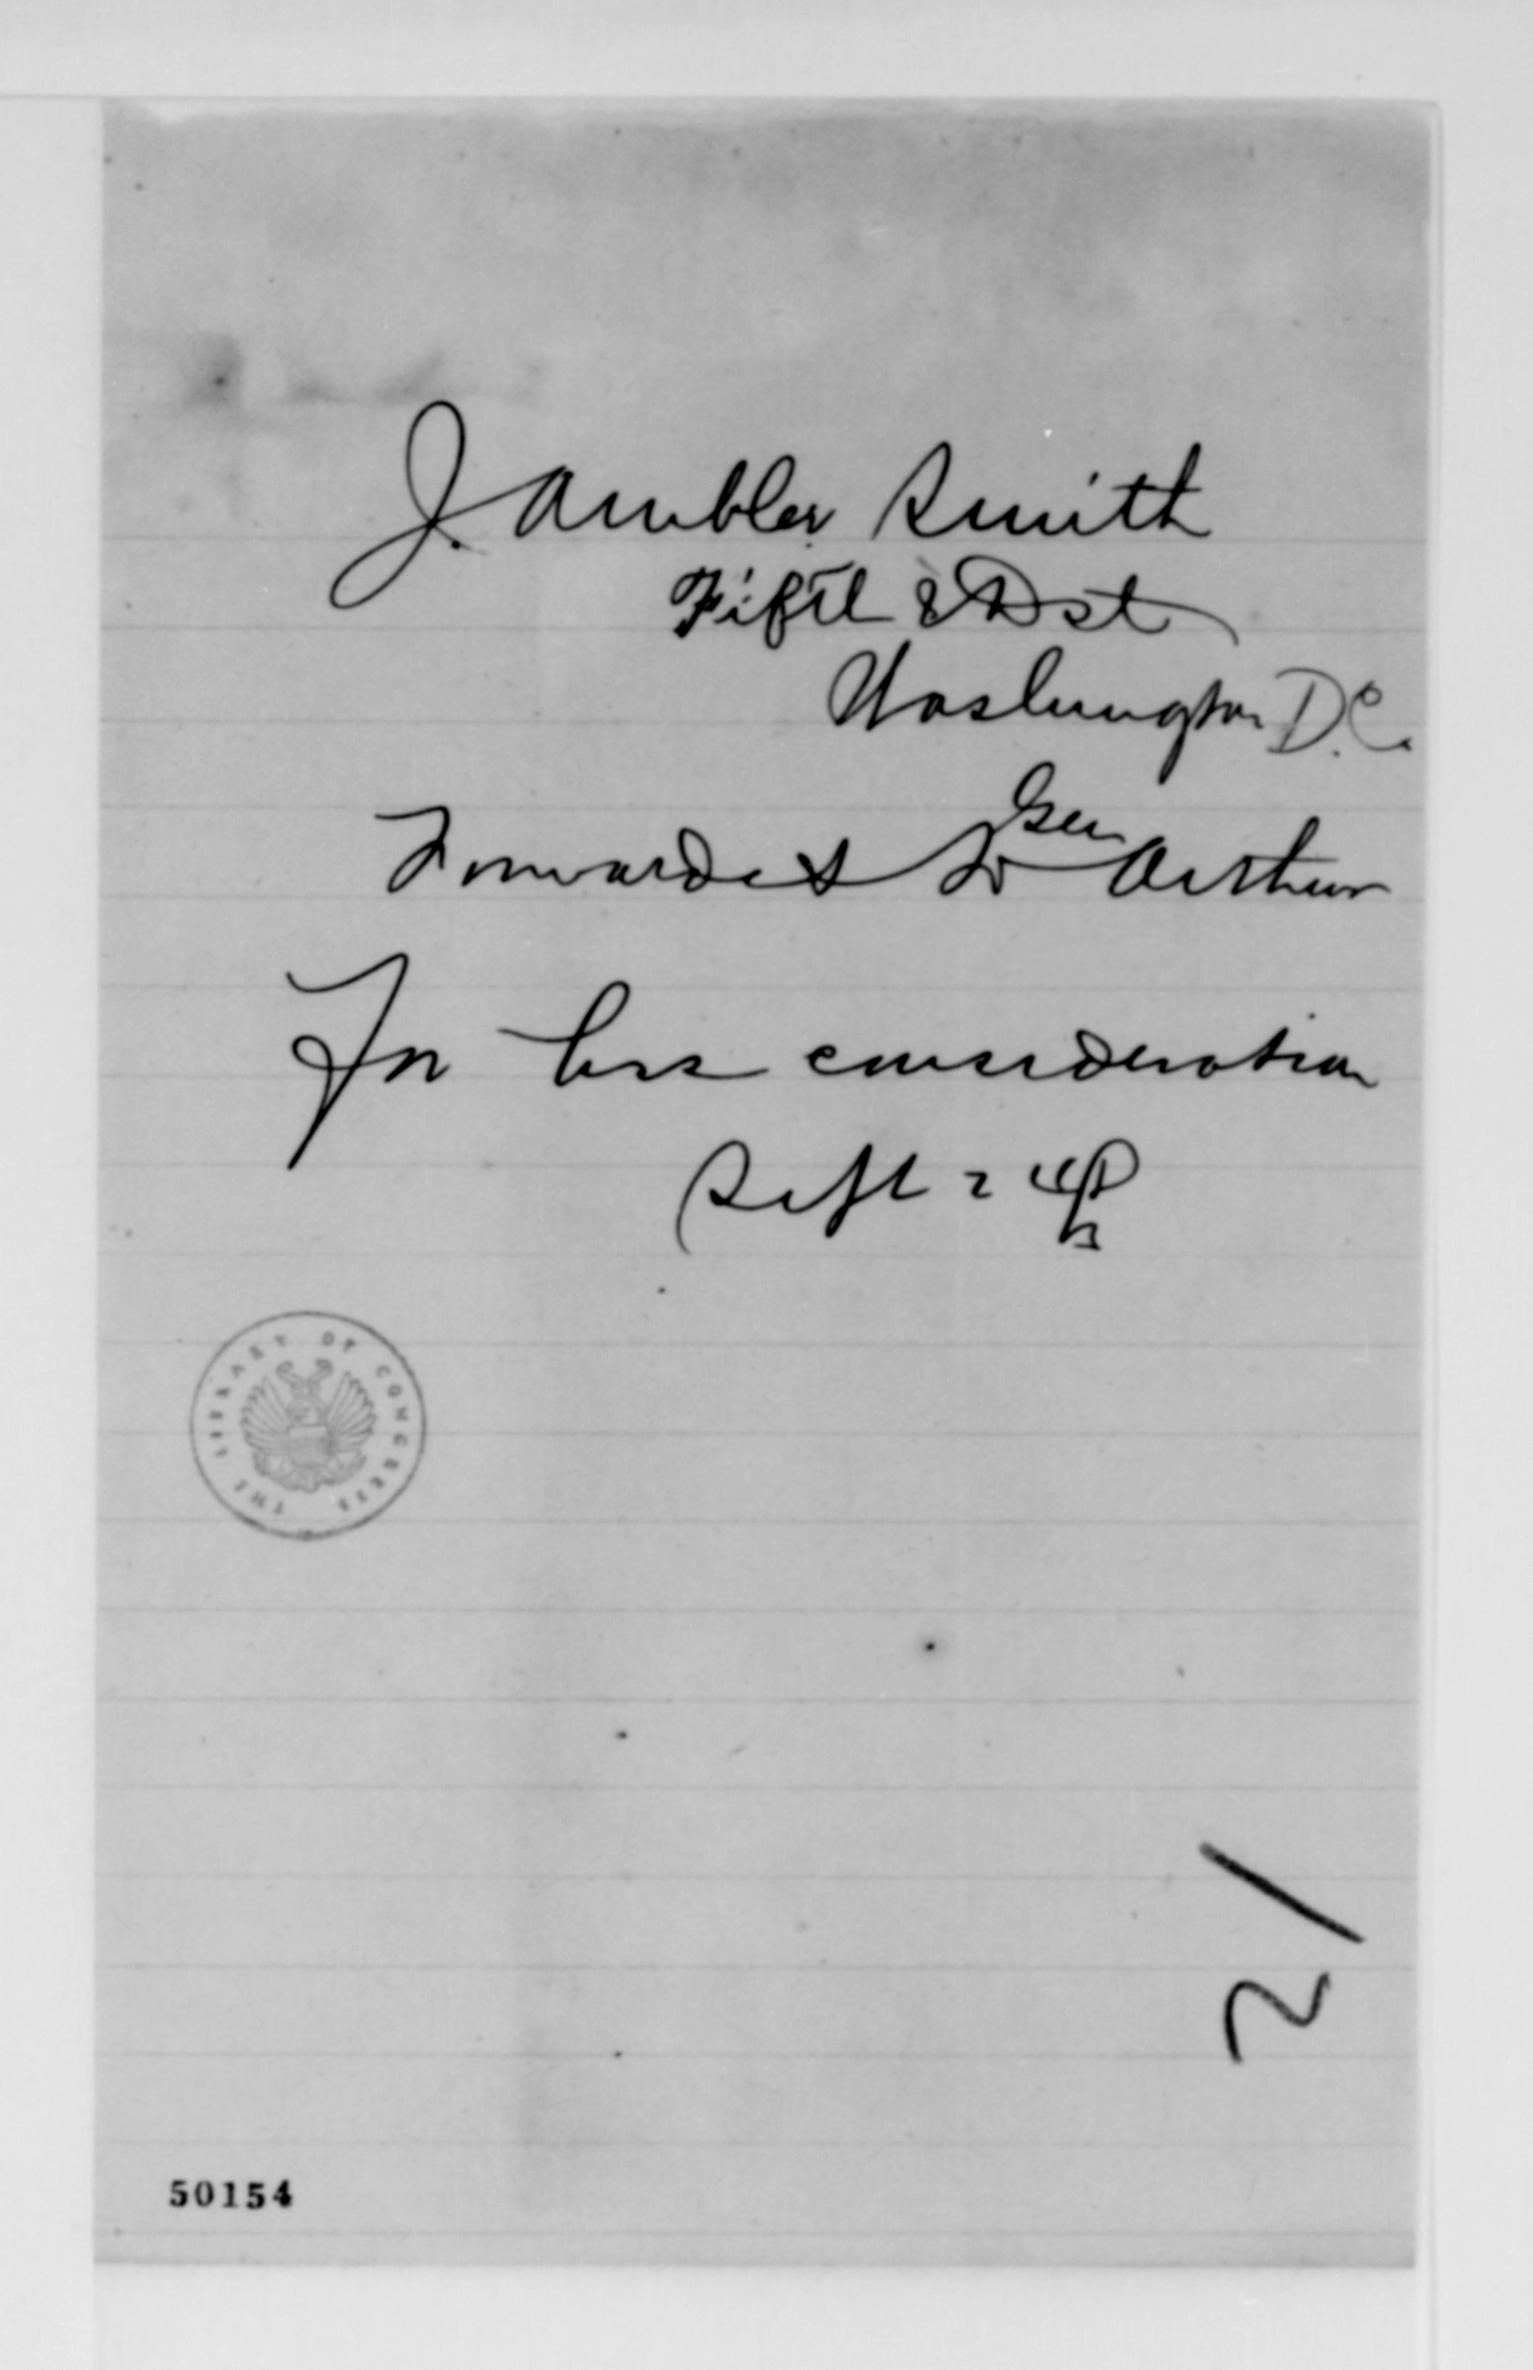 J. Ambler Smith
Fifth & D st
Washington D.C.
Gen
Forwarded to Arthur
For his consideration
Sept 24
THE LIBRARY OF CONGRESS
21
50154